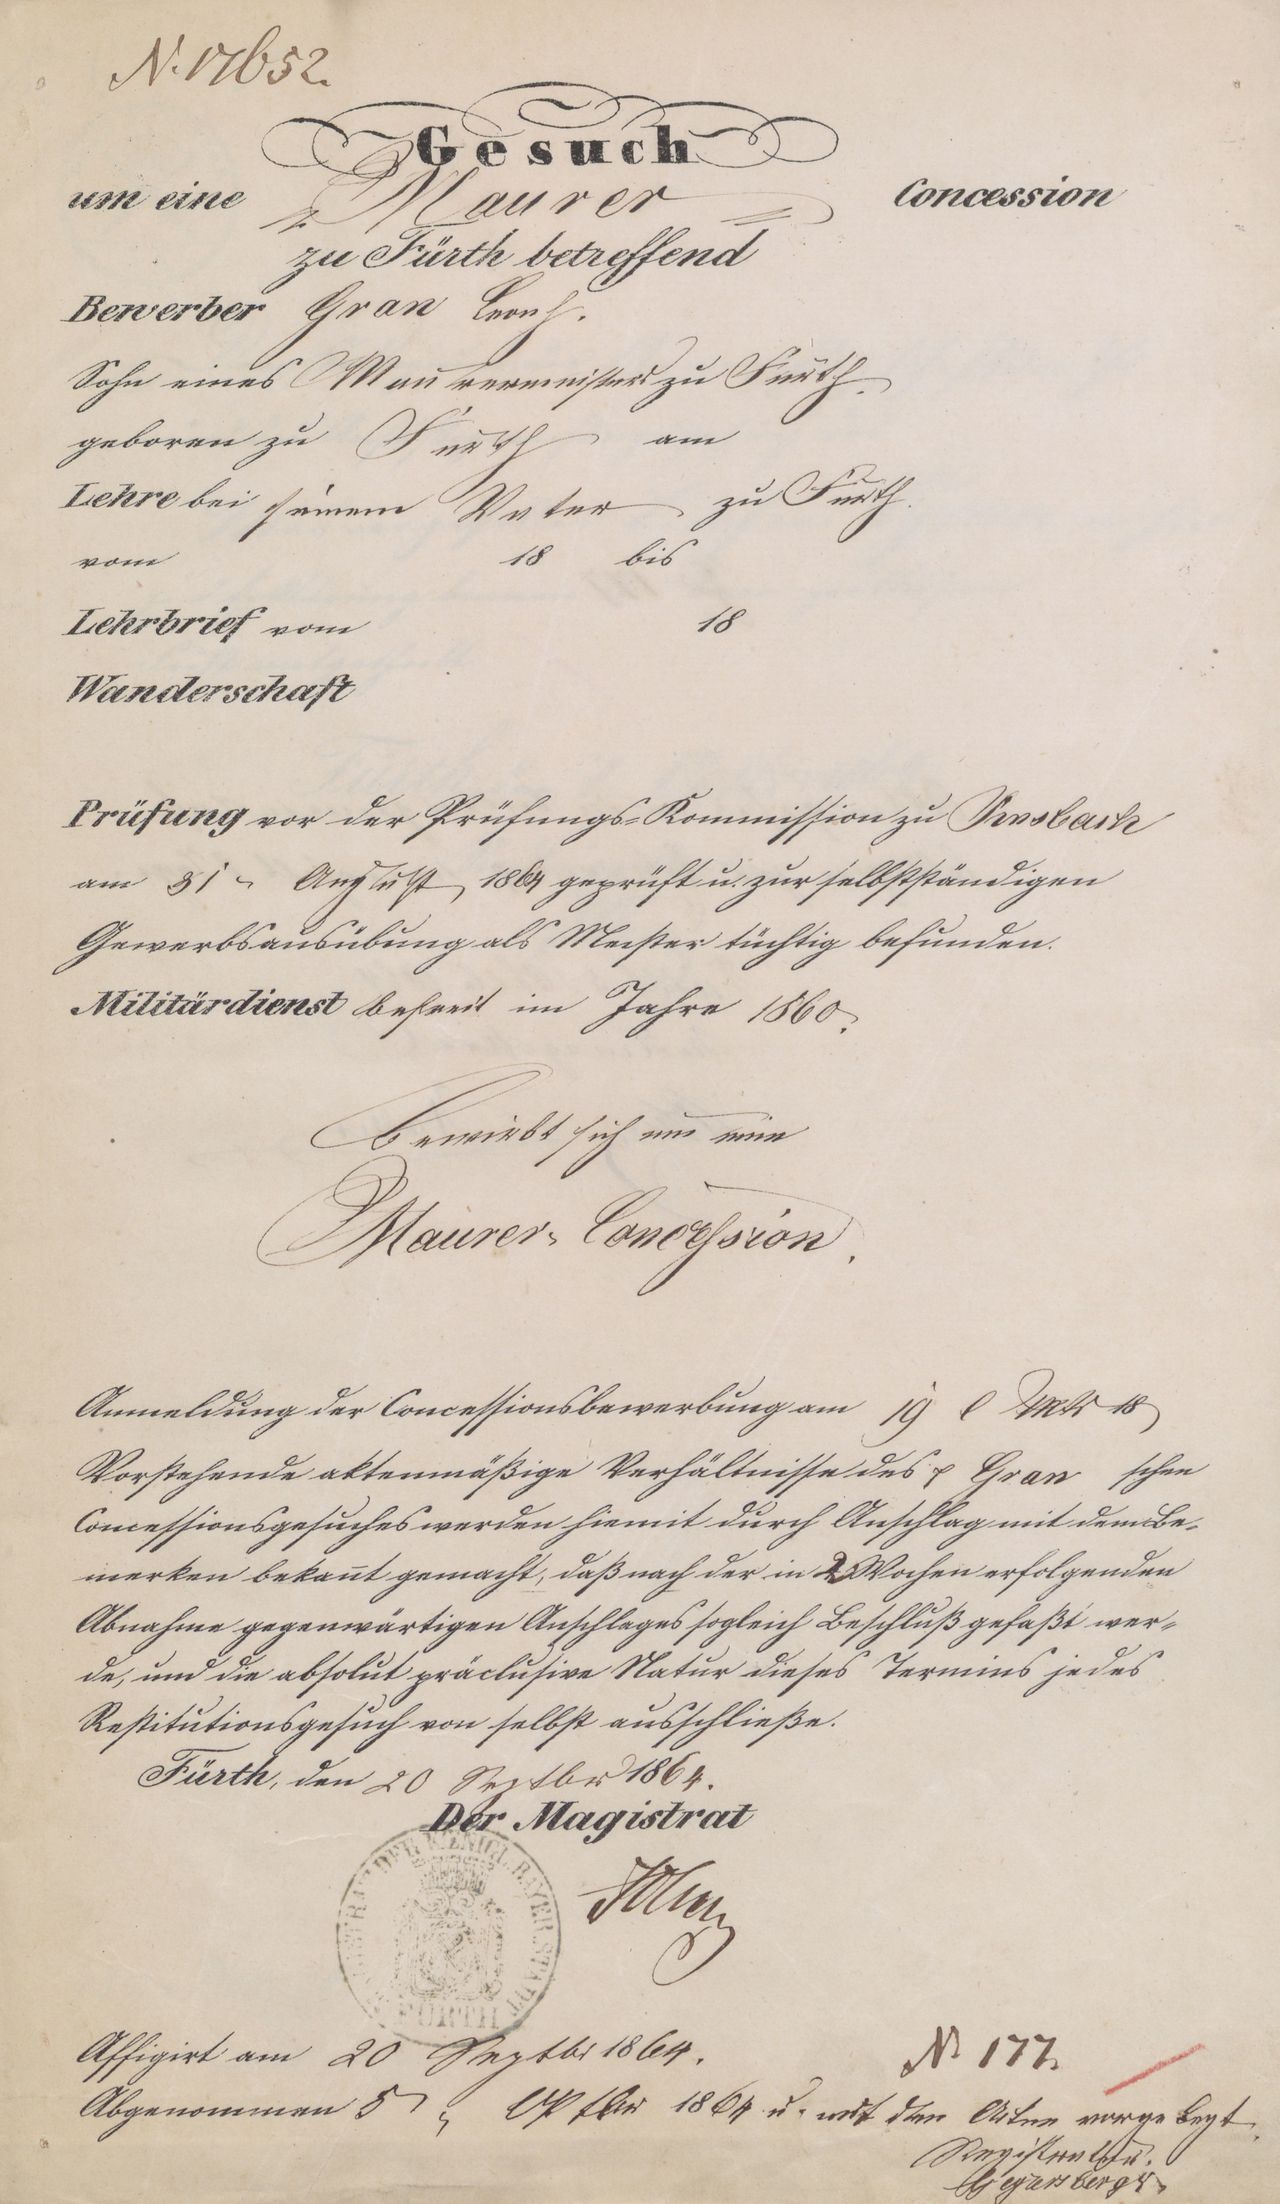 N. 17652.
Gesuch
um eine Maurer Concession
zu Fürth betreffend
Bewerber Gran Leonh.
Sohn eines Maurermeisters zu Fürth.
geboren zu Fürth am
Lehre bei seinem Vater zu Fürth.
vom 18 bis
Lehrbrief vom 18
Wanderschaft
Prüfung vor der Prüfungs-Kommission zu Ansbach
am 31 August 1864 geprüft u. zur selbstständigen
Gewerbsausübung als Meister tüchtig befunden.
Militärdienst befreit im Jahre 1860.
Bewirbt sich um eine
Maurer-Concession.
Anmeldung der Concessionsbewerbung am 19 18
Vorstehende aktenmäßige Verhältnisse des Gran schen
Concessionsgesuches werden hiemit durch Anschlag mit dem Be-
merken bekannt gemacht, daß nach der in 2 Wochen erfolgenden
Abnahme gegenwärtigen Anschlages sogleich Beschluß gefaßt wer-
de, und die absolut präclusive Natur dieses Termins jedes
Restitutionsgesuch von selbst ausschließe.
Fürth, den 20 Septbr 1864.
Der Magistrat
MAGISTRAT DER KOENIGL. BAYER. STADT FÜRTH
Affigirt am 20 Septbr 1864.
N. 177.
Abgenommen 5 1864 u. mit den Akten vorgelegt.
Registratur.